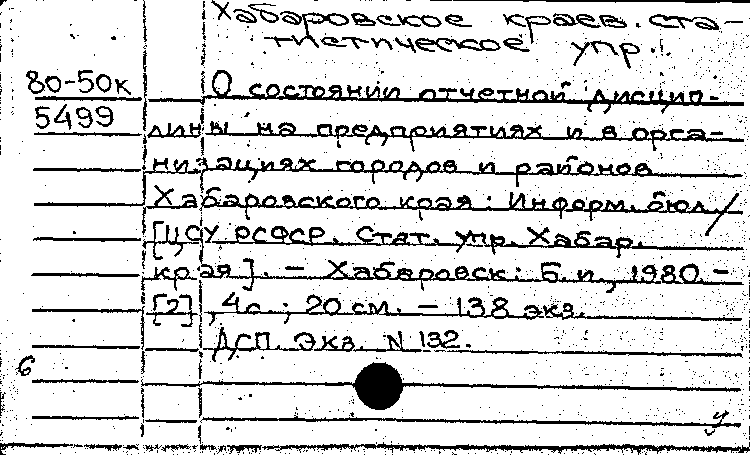 Хабаровское краев. ста-
тистическое упр.
80-50к
5499
О состоянии отчетной дисцип-
лины на предприятиях и в орга-
низациях городов и районов
Хабаровского края: Информ. бюл./
[ЦСУ РСФСР. Стат. упр. Хабар.
края]. - Хабаровск: Б. и., 1980. -
[2], 4с.; 20 см. - 138 экз.
ДСП. Экз. N 132.
6
у